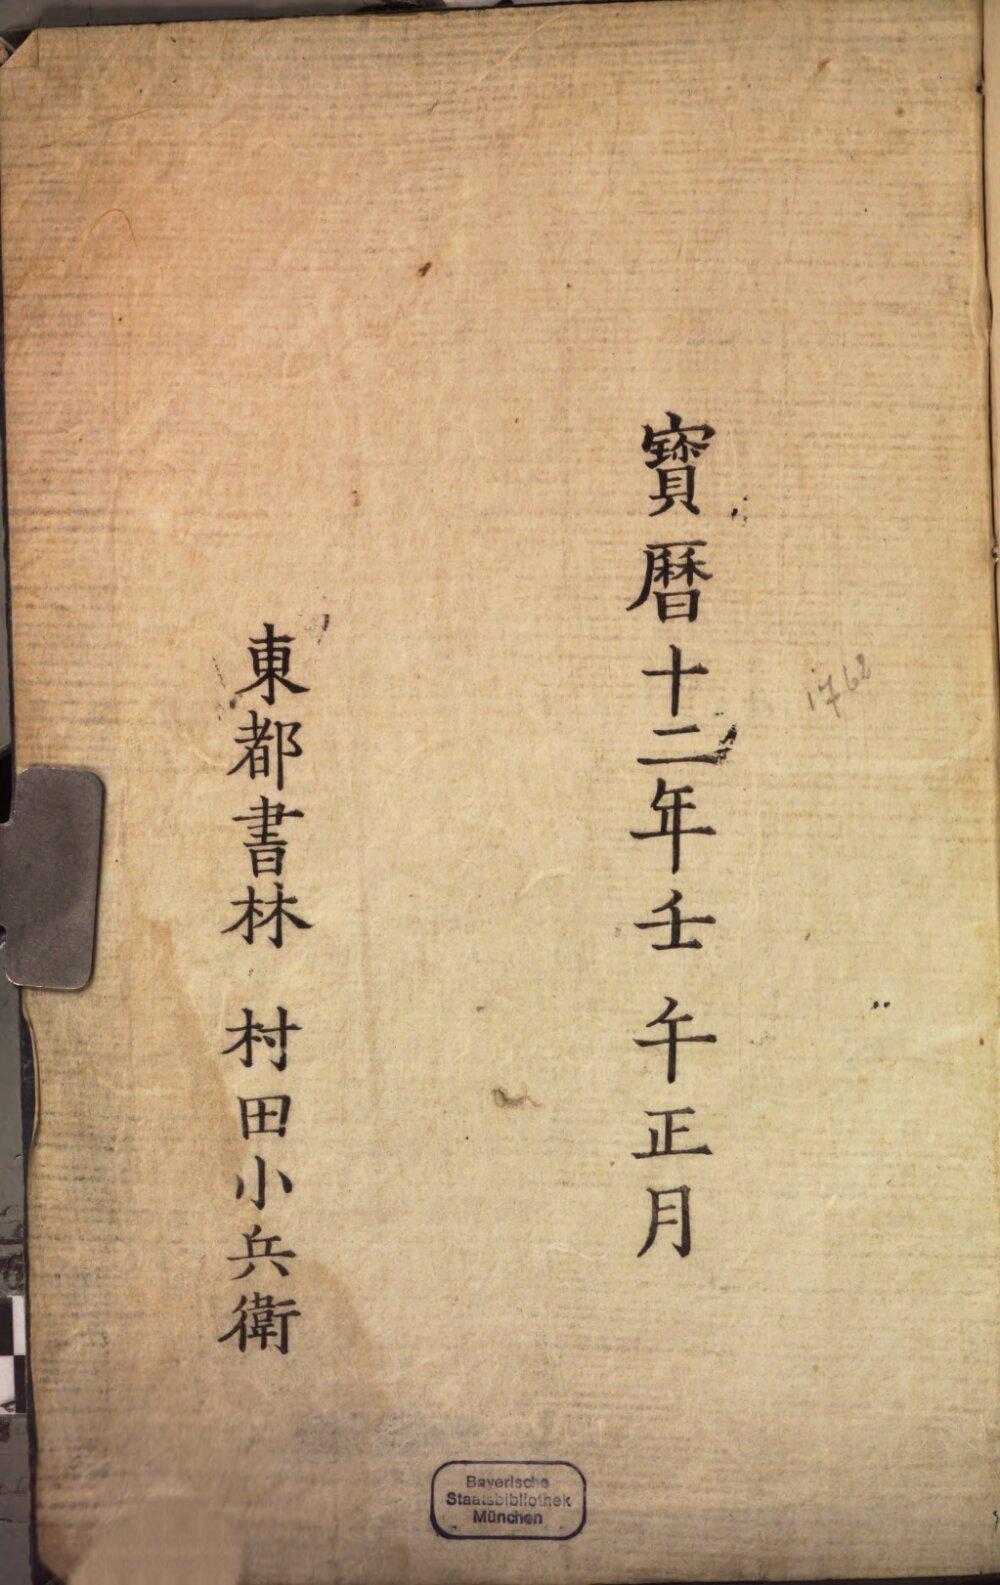 寳暦十二年壬午正月
1762
東都書林 村田小兵衛
Bayerische
Staatsbibliothek
München